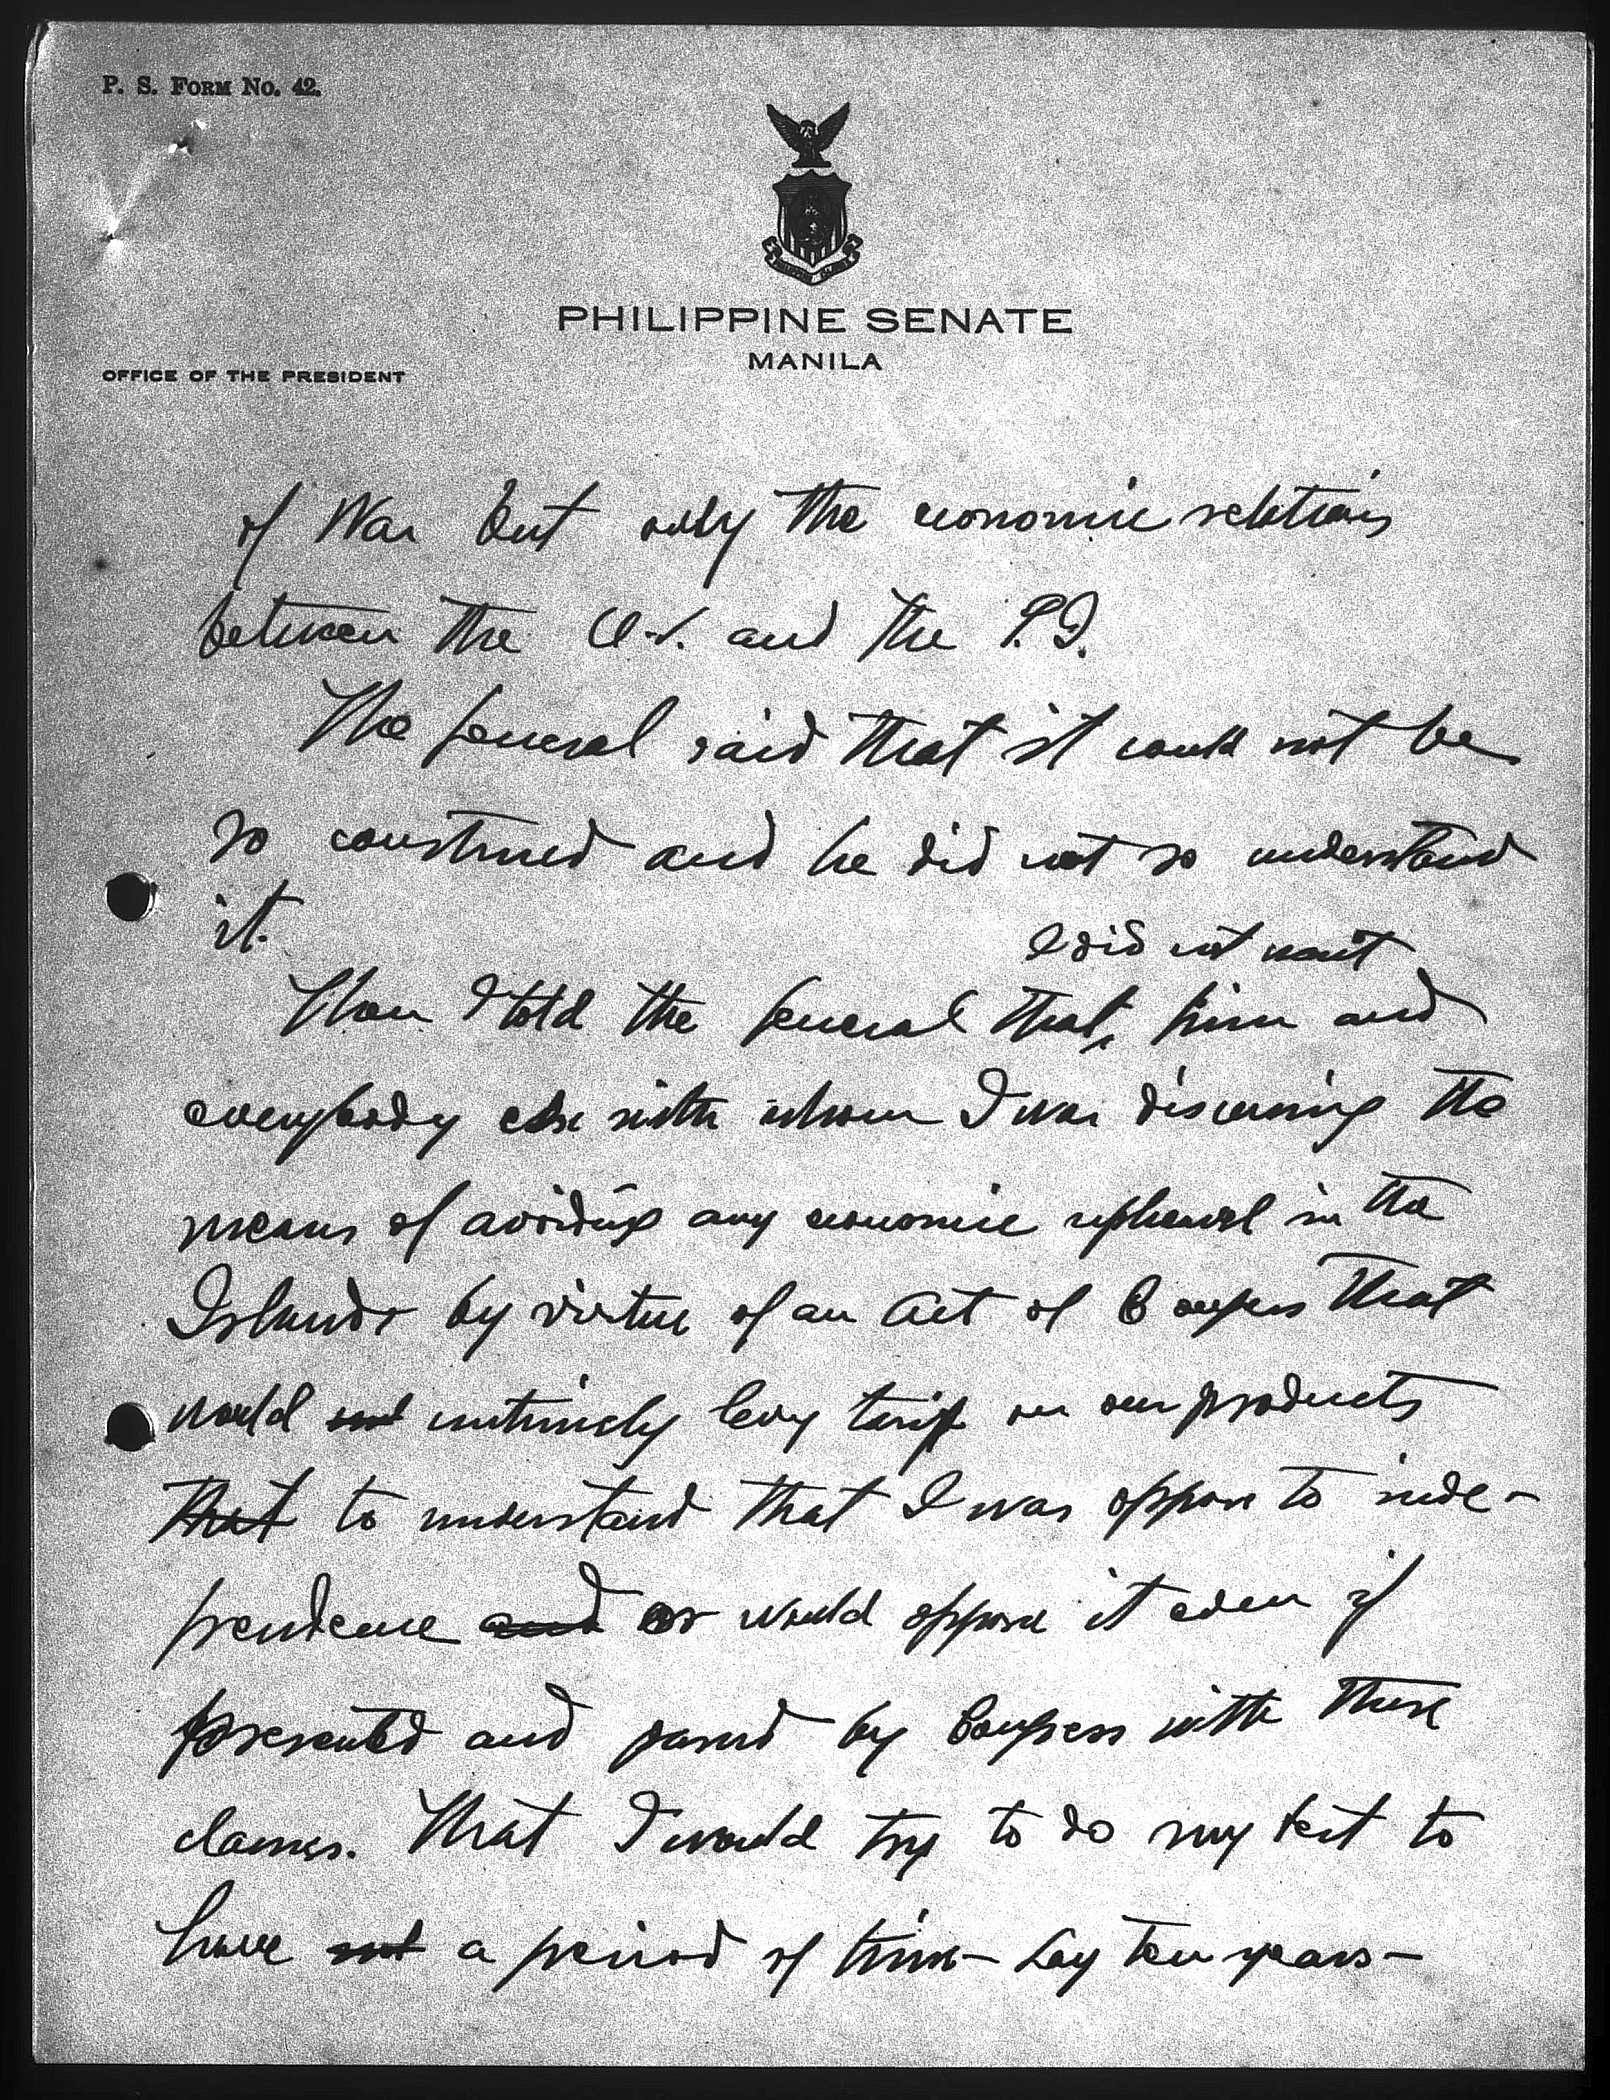 P. S. FORM NO. 42.
PHILIPPINE SENATE
MANILA
OFFICE OF THE PRESIDENT
of War but only the economic relations
between the U.S. and the P.I.
The General said that it could not be
so construed and he did not so understand
it.
I did not want
Then I told the General that him and
everybody else with whom I was discussing the
means of avoiding any economic upheaval in the
Islands by virtue of an Act of Congress that
would not levy tariff on our products
that to understand that I was oppose to inde-
pendence and or would oppose it even if
presented and passed by Congress with these
clauses. That I would try to do my best to
have not a period of time – say ten years –